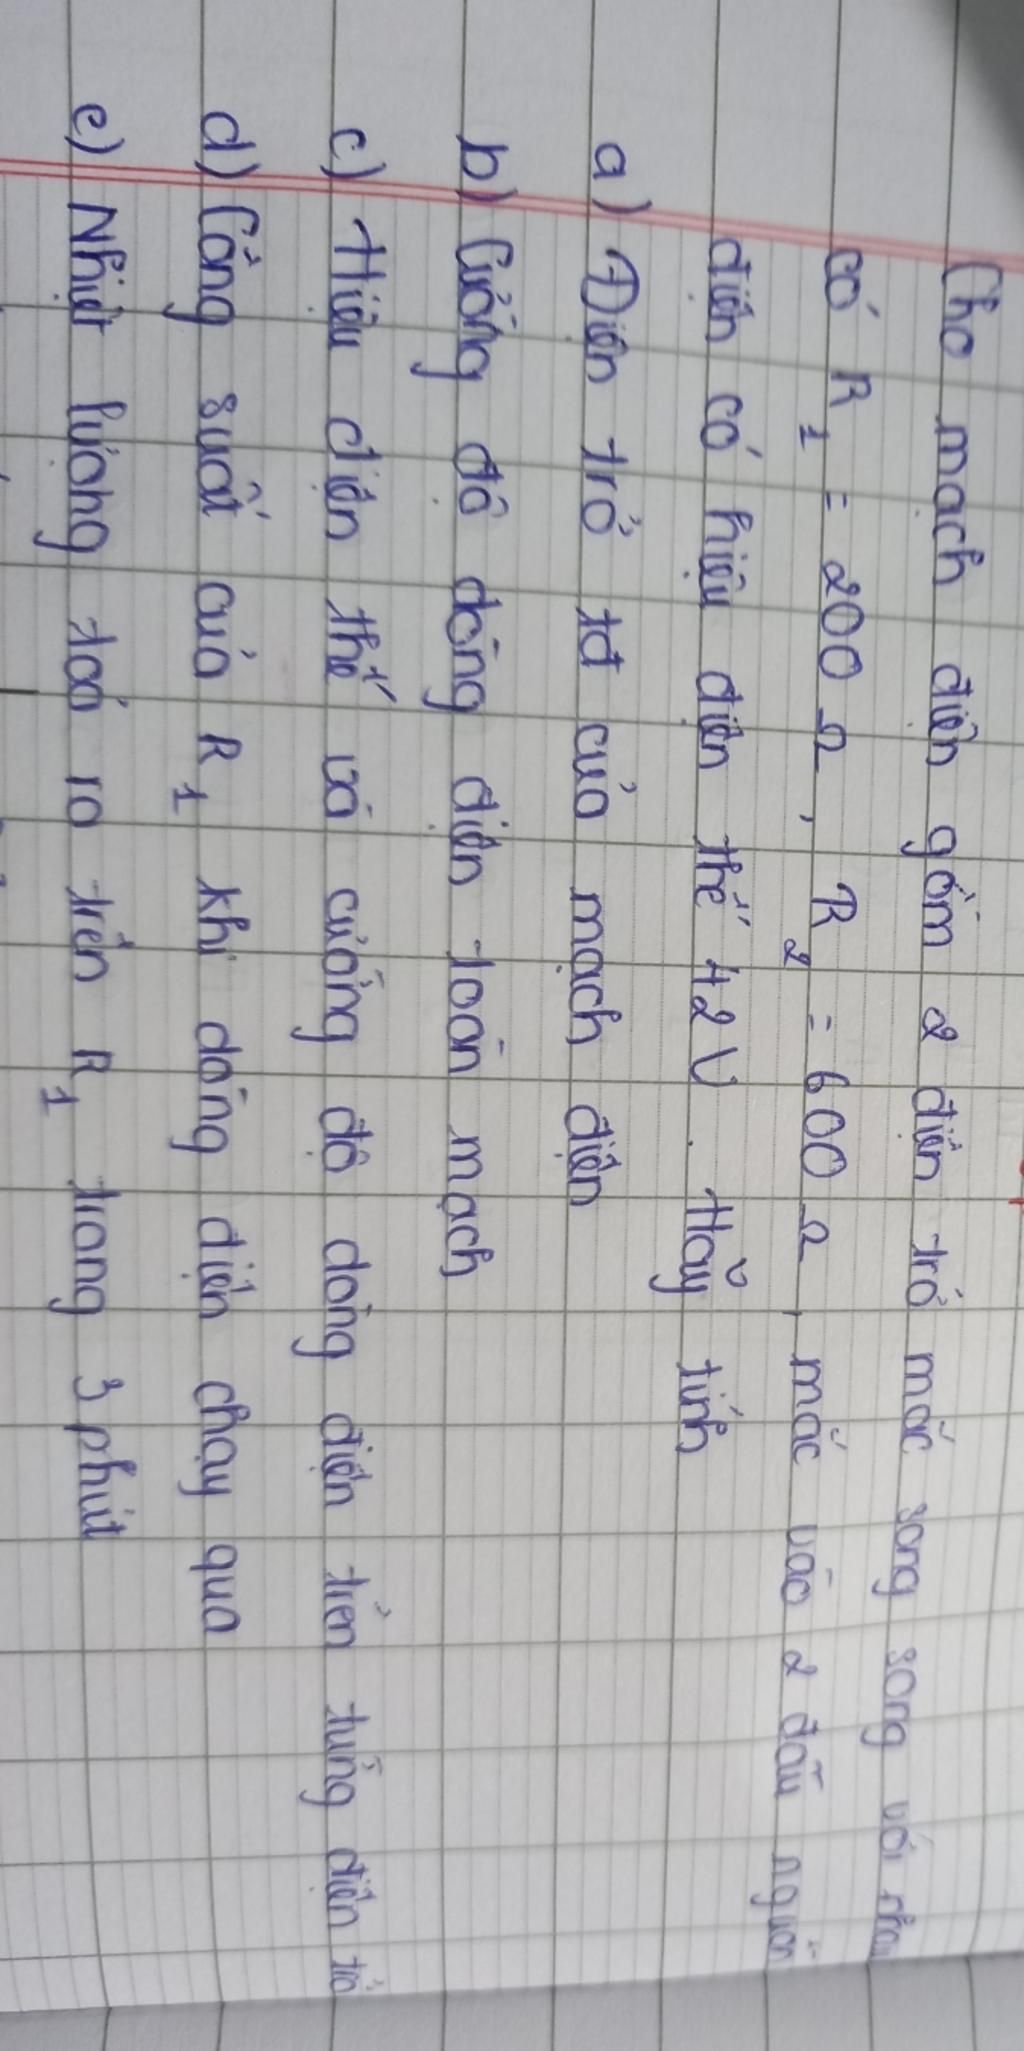 Cho mạch điện gồm 2 điện trở mắc song song với nhau
có R1 = 200 Ω, R2 = 600 Ω, mắc vào 2 đầu nguồn
điện có hiệu điện thế 42V. Hãy tính
a) Điện trở tđ của mạch điện
b) Cường độ dòng điện toàn mạch
c) Hiệu điện thế và cường độ dòng điện trên từng điện trở
d) Công suất của R1 khi dòng điện chạy qua
e) Nhiệt lượng toả ra trên R1 trong 3 phút